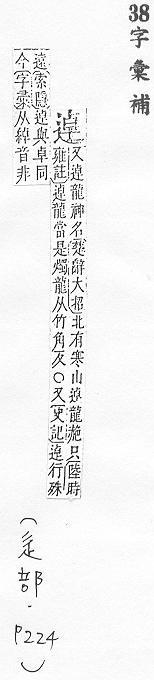 38字彙補
逴
又逴龍神名楚辭大招北有寒山逴龍赩只陸時
雍註逴龍當是燭龍从竹角反○又史記逴行殊
遠索隱逴與卓同
今字彙从綽音非
(辵部．P224)